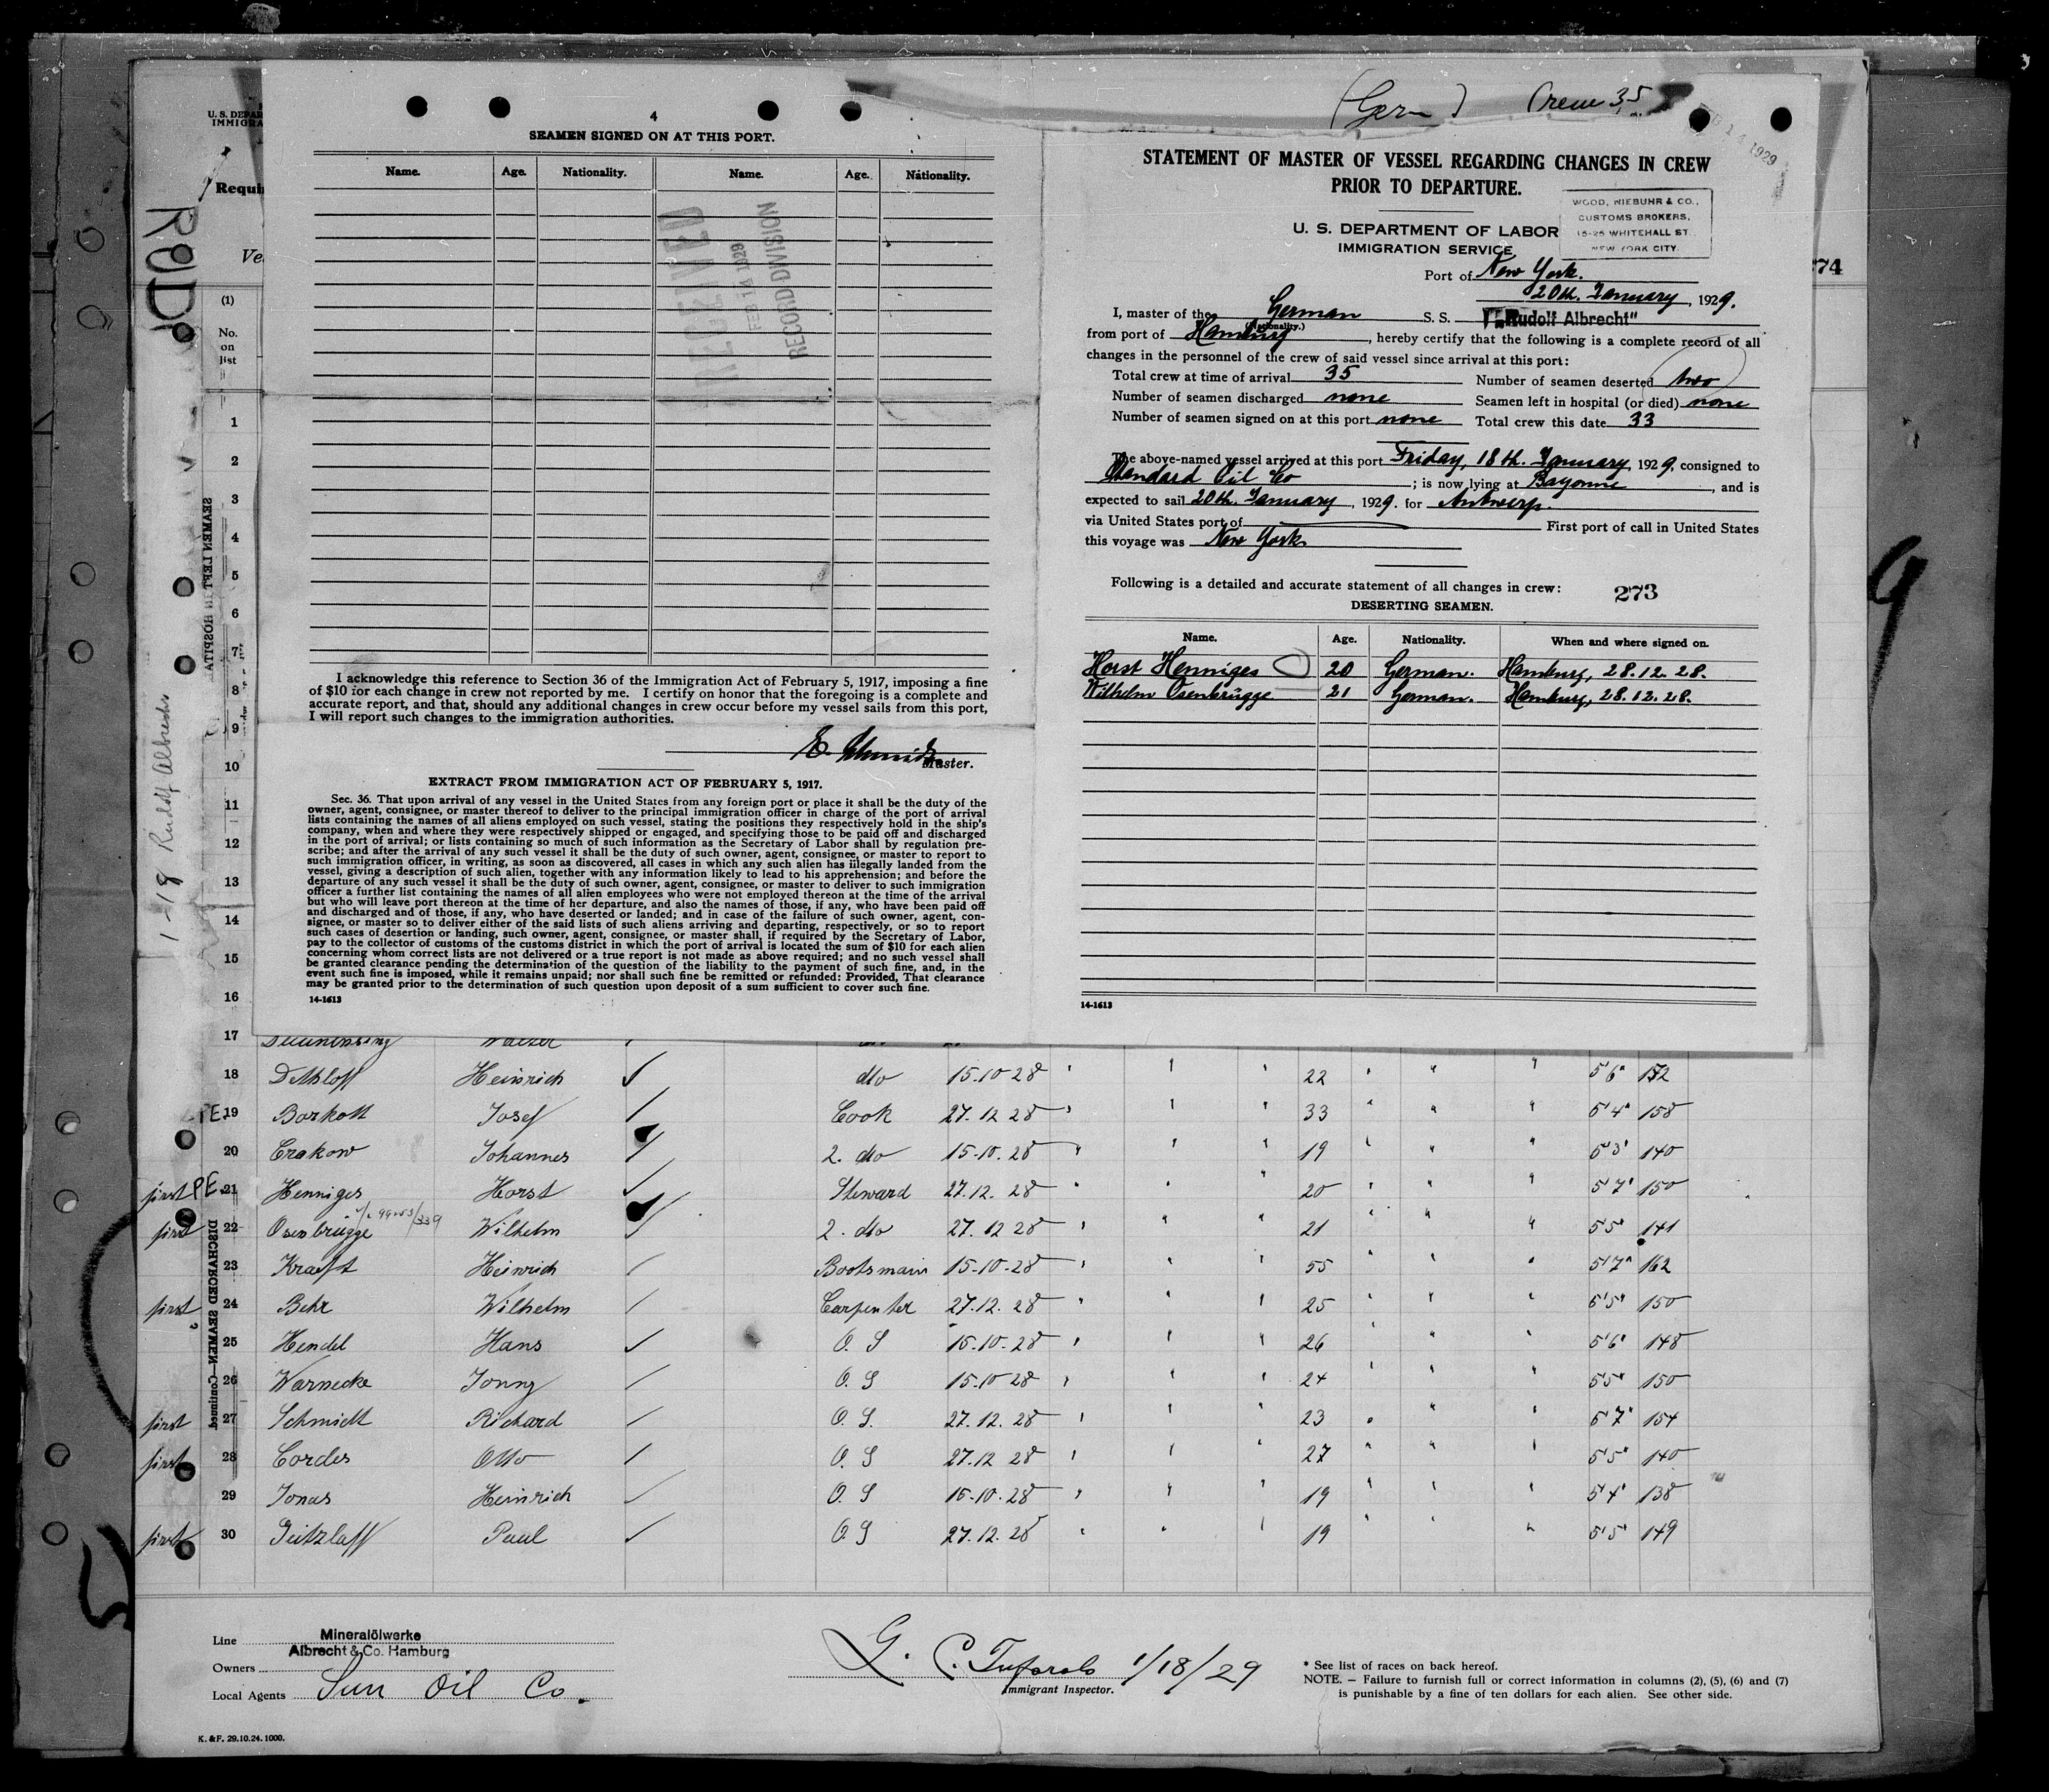 (Germ) Crew 35
FEB 14 1929
U. S. DEPAR
IMMIGRA
Requi
Ve
(1)
No.
on
list
274
RUDI
1-18 Rudolf Albrecht
4
SEAMEN SIGNED ON AT THIS PORT.
Name. Age. Nationality. Name. Age. Nationality.
RECEIVED
FEB 14 1929
RECORD DIVISION
I acknowledge this reference to Section 36 of the Immigration Act of February 5, 1917, imposing a fine
of $10 for each change in crew not reported by me. I certify on honor that the foregoing is a complete and
accurate report, and that, should any additional changes in crew occur before my vessel sails from this port,
I will report such changes to the immigration authorities.
E. Schmidt
Master.
EXTRACT FROM IMMIGRATION ACT OF FEBRUARY 5, 1917.
Sec. 36. That upon arrival of any vessel in the United States from any foreign port or place it shall be the duty of the
owner, agent, consignee, or master thereof to deliver to the principal immigration officer in charge of the port of arrival
lists containing the names of all aliens employed on such vessel, stating the positions they respectively hold in the ship's
company, when and where they were respectively shipped or engaged, and specifying those to be paid off and discharged
in the port of arrival; or lists containing so much of such information as the Secretary of Labor shall by regulation pre-
scribe; and after the arrival of any such vessel it shall be the duty of such owner, agent, consignee, or master to report to
such immigration officer, in writing, as soon as discovered, all cases in which any such alien has illegally landed from the
vessel, giving a description of such alien, together with any information likely to lead to his apprehension; and before the
departure of any such vessel it shall be the duty of such owner, agent, consignee, or master to deliver to such immigration
officer a further list containing the names of all alien employees who were not employed thereon at the time of the arrival
but who will leave port thereon at the time of her departure, and also the names of those, if any, who have been paid off
and discharged and of those, if any, who have deserted or landed; and in case of the failure of such owner, agent, con-
signee, or master so to deliver either of the said lists of such aliens arriving and departing, respectively, or so to report
such cases of desertion or landing, such owner, agent, consignee, or master shall, if required by the Secretary of Labor,
pay to the collector of customs of the customs district in which the port of arrival is located the sum of $10 for each alien
concerning whom correct lists are not delivered or a true report is not made as above required; and no such vessel shall
be granted clearance pending the determination of the question of the liability to the payment of such fine, and, in the
event such fine is imposed, while it remains unpaid; nor shall such fine be remitted or refunded: Provided, That clearance
may be granted prior to the determination of such question upon deposit of a sum sufficient to cover such fine.
14-1613
STATEMENT OF MASTER OF VESSEL REGARDING CHANGES IN CREW
PRIOR TO DEPARTURE.
U. S. DEPARTMENT OF LABOR
IMMIGRATION SERVICE
WOOD, NIEBUHR & CO.,
CUSTOMS BROKERS,
15-25 WHITEHALL ST.
NEW YORK CITY.
Port of New York.
20th. January, 1929.
I, master of the German S. S. "Rudolf Albrecht"
(Nationality.)
from port of Hamburg, hereby certify that the following is a complete record of all
changes in the personnel of the crew of said vessel since arrival at this port:
Total crew at time of arrival 35 Number of seamen deserted two
Number of seamen discharged none Seamen left in hospital (or died) none
Number of seamen signed on at this port none Total crew this date 33
The above-named vessel arrived at this port Friday, 18th. January, 1929, consigned to
Standard Oil Co; is now lying at Bayonne, and is
expected to sail 20th. January, 1929. for Antwerp.
via United States port of First port of call in United States
this voyage was New York
Following is a detailed and accurate statement of all changes in crew: 273
DESERTING SEAMEN.
Name. Age. Nationality. When and where signed on.
Horst Henniges 20 German. Hamburg, 28.12.28.
Wilhelm Osenbrügge 21 German. Hamburg, 28.12.28.
14-1613
SEAMEN LEFT IN HOSPITA
DISCHARGED SEAMEN—Continued
1
2
3
4
5
6
7
8
9
10
11
12
13
14
15
16
17 Walter
18 Dethloff Heinrich dto 15.10.28 " " " 22 " " " 5'6" 172
PE. 19 Borkott Josef Cook 27.12.28 " " " 33 " " " 5'4" 158
20 Crakow Johannes 2. dto 15.10.28 " " " 19 " " " 5'3" 140
first PE. 21 Henniges Horst Steward 27.12.28 " " " 20 " " " 5'7" 150
first 22 Osenbrügge Wilhelm 2. dto 27.12.28 " " " 21 " " " 5'5" 141
23 Kraeft Heinrich Bootsmann 15.10.28 " " " 55 " " " 5'7" 162
first 24 Behr Wilhelm Carpenter 27.12.28 " " " 25 " " " 6'5" 150
25 Hendel Hans O. S 15.10.28 " " " 26 " " " 5'6" 148
26 Warnecke Jonny O. S 15.10.28 " " " 24 " " " 5'5" 150
first 27 Schmidt Richard O. S. 27.12.28 " " " 23 " " " 5'7" 154
first 28 Cordes Otto O. S 27.12.28 " " " 27 " " " 5'5" 140
29 Jonas Heinrich O. S 15.10.28 " " " 19 " " " 5'4" 138
first 30 Paul O. S 27.12.28 " " " 19 " " " 5'5" 149
Line Mineralölwerke
Albrecht & Co. Hamburg
Owners
Local Agents Sun Oil Co.
G. C. 1/18/29
Immigrant Inspector.
* See list of races on back hereof.
NOTE. — Failure to furnish full or correct information in columns (2), (5), (6) and (7)
is punishable by a fine of ten dollars for each alien. See other side.
K. & F. 29.10.24.1000.
9